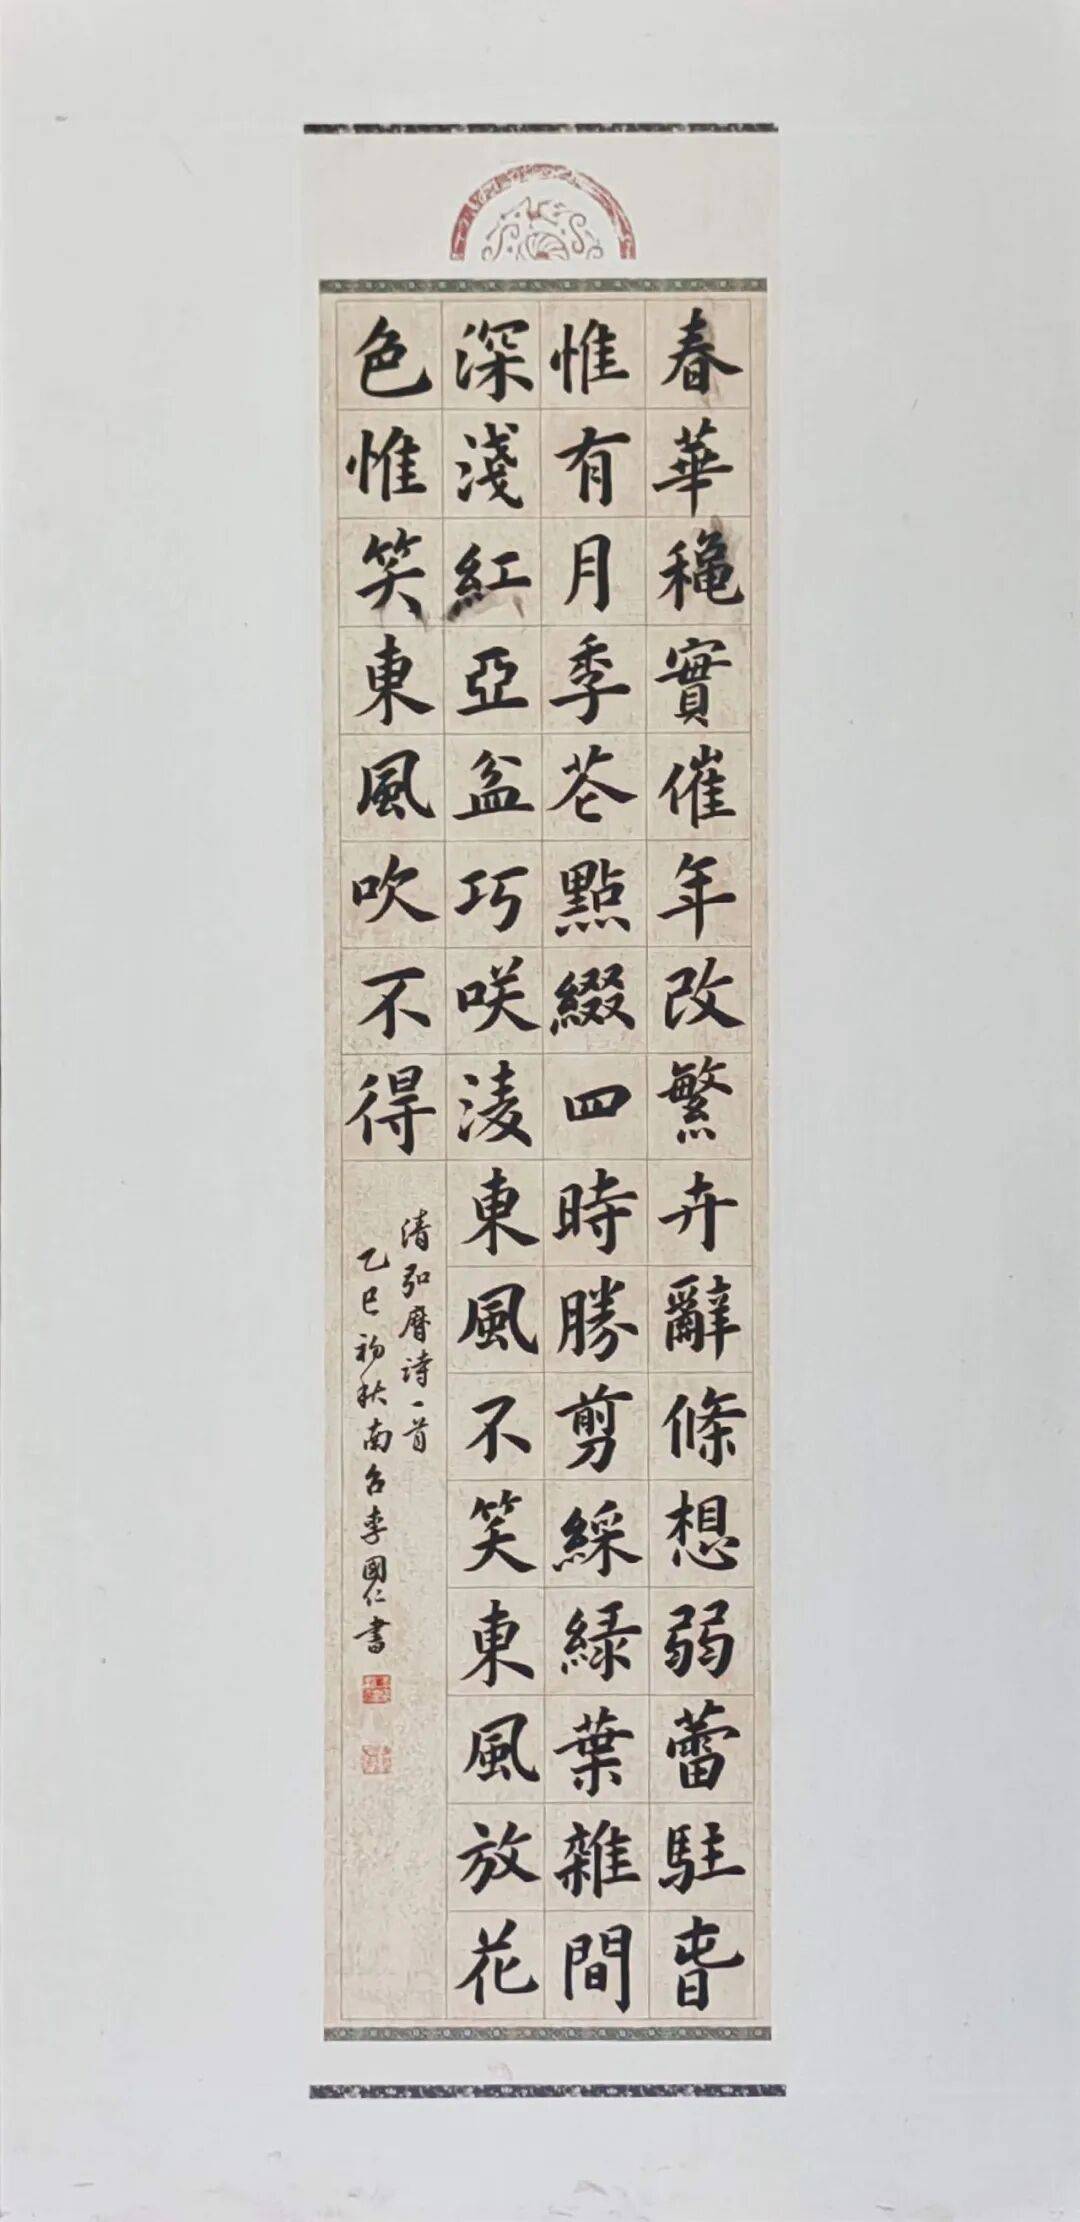 春華穐實催年改繁卉辭條想弱蕾駐旾
惟有月季芲點綴四時勝剪綵緑葉雜間
深淺紅亞盆巧咲淩東風不笑東風放花
色惟笑東風吹不得
清弘曆詩一首
乙巳初秋南台李國仁書